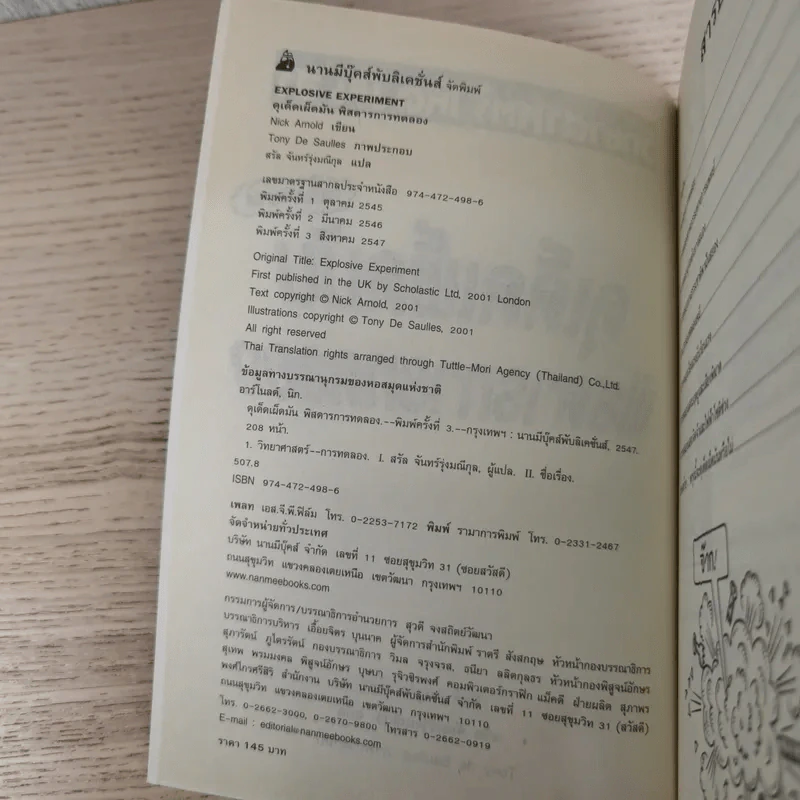 นานมีบุ๊คส์พับลิเคชั่นส์ จัดพิมพ์
EXPLOSIVE EXPERIMENT
ดุเด็ดเผ็ดมัน พิสดารการทดลอง
Nick Arnold เขียน
Tony De Saulles ภาพประกอบ
สรัล จันทร์รุ่งมณีกุล แปล
เลขมาตรฐานสากลประจำหนังสือ 974-472-498-6
พิมพ์ครั้งที่ 1 ตุลาคม 2545
พิมพ์ครั้งที่ 2 มีนาคม 2546
พิมพ์ครั้งที่ 3 สิงหาคม 2547
Original Title: Explosive Experiment
First published in the UK by Scholastic Ltd, 2001 London
Text copyright © Nick Arnold, 2001
Illustrations copyright © Tony De Saulles, 2001
All right reserved
Thai Translation rights arranged through Tuttle-Mori Agency (Thailand) Co.,Ltd.
ข้อมูลทางบรรณานุกรมของหอสมุดแห่งชาติ
อาร์โนลด์, นิก.
ดุเด็ดเผ็ดมัน พิสดารการทดลอง.--พิมพ์ครั้งที่ 3.--กรุงเทพฯ : นานมีบุ๊คส์พับลิเคชั่นส์, 2547.
208 หน้า.
1. วิทยาศาสตร์--การทดลอง. I. สรัล จันทร์รุ่งมณีกุล, ผู้แปล. II. ชื่อเรื่อง.
507.8
ISBN 974-472-498-6
เพลท เอส.จี.พี.ฟิล์ม โทร. 0-2253-7172 พิมพ์ รามาการพิมพ์ โทร. 0-2331-2467
จัดจำหน่ายทั่วประเทศ
บริษัท นานมีบุ๊คส์ จำกัด เลขที่ 11 ซอยสุขุมวิท 31 (ซอยสวัสดี)
ถนนสุขุมวิท แขวงคลองเตยเหนือ เขตวัฒนา กรุงเทพฯ 10110
www.nanmeebooks.com
กรรมการผู้จัดการ/บรรณาธิการอำนวยการ สุวดี จงสถิตย์วัฒนา
บรรณาธิการบริหาร เอื้อยจิตร บุนนาค ผู้จัดการสำนักพิมพ์ ราตรี สังสกฤษ หัวหน้ากองบรรณาธิการ
สุภารัตน์ ภูไตรรัตน์ กองบรรณาธิการ วิมล จรุงจรส, ธนียา ลลิตกุลธร หัวหน้ากองพิสูจน์อักษร
สุเทพ พรมมงคล พิสูจน์อักษร บุษบา รุจิวชิรพงศ์ คอมพิวเตอร์กราฟิก แม็คดี ฝ่ายผลิต สุภาพร
พงศ์ไกรศรีสิริ สำนักงาน บริษัท นานมีบุ๊คส์พับลิเคชั่นส์ จำกัด เลขที่ 11 ซอยสุขุมวิท 31 (สวัสดี)
ถนนสุขุมวิท แขวงคลองเตยเหนือ เขตวัฒนา กรุงเทพฯ 10110
โทร. 0-2662-3000, 0-2670-9800 โทรสาร 0-2662-0919
E-mail : editorial@nanmeebooks.com
ราคา 145 บาท